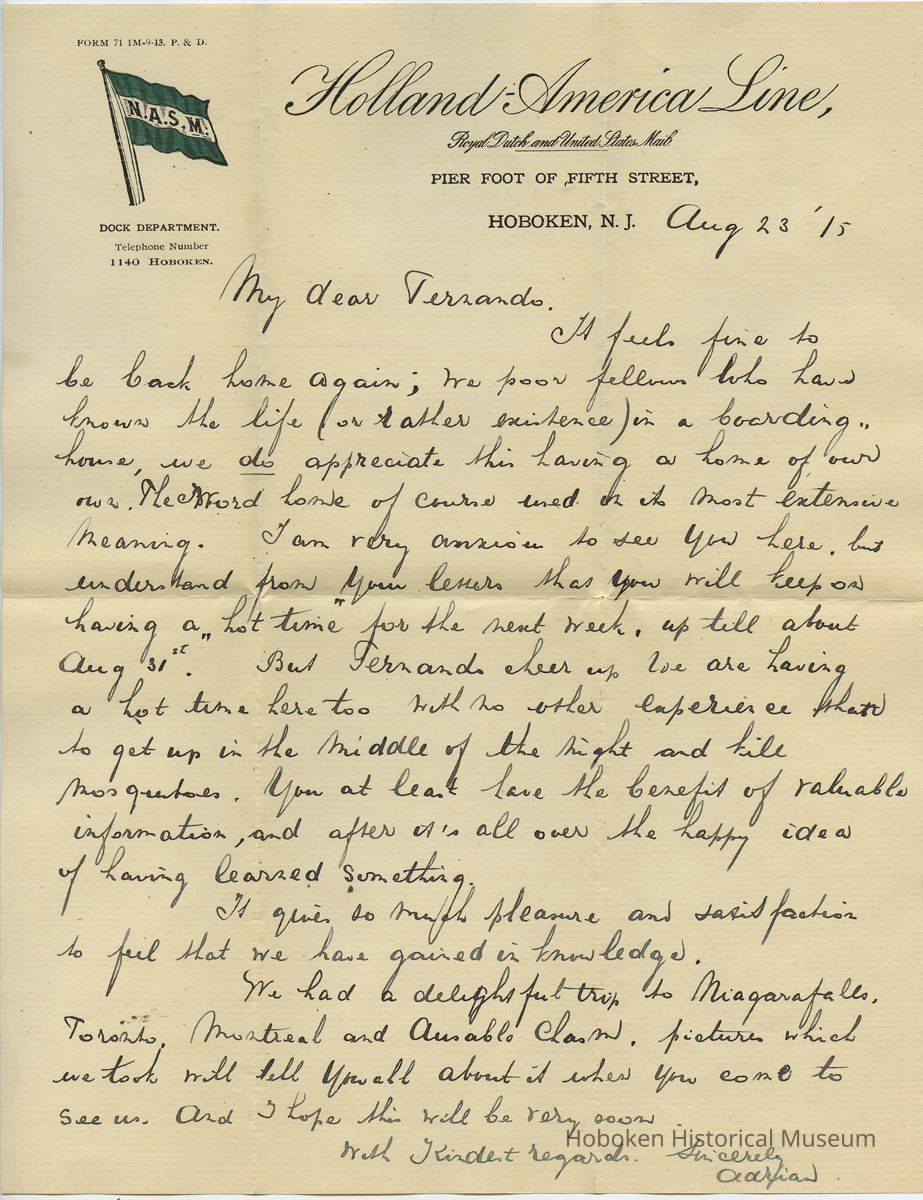 FORM 71 1M-9-13. P. & D.
N.A.S.M.
Holland-America Line,
Royal Dutch and United States Mail.
PIER FOOT OF FIFTH STREET,
HOBOKEN, N. J. Aug 23 '15
DOCK DEPARTMENT.
Telephone Number
1140 HOBOKEN.
My dear Fernando.
It feels fine to
be back home again; we poor fellows who have
known the life (or rather existence) in a boarding„
house, we do appreciate this having a home of our
own. The Word home of course used in its most extensive
meaning. I am very anxious to see you here, but
understand from your letters that you will keep on
having a „hot time" for the next week, up till about
Aug 31st. But Fernando cheer up We are having
a hot time here too with no other experience than
to get up in the middle of the night and kill
mosquitoes. You at least have the benefit of valuable
information, and after it's all over the happy idea
of having learned something.
It gives so much pleasure and satisfaction
to feel that we have gained in knowledge.
We had a delightful trip to Niagarafalls,
Toronto, Montreal and Ausable Chasm, pictures which
we took will tell you all about it when you come to
see us. And I hope this will be very soon.
With Kindest regards. Sincerely
Adrian
Hoboken Historical Museum